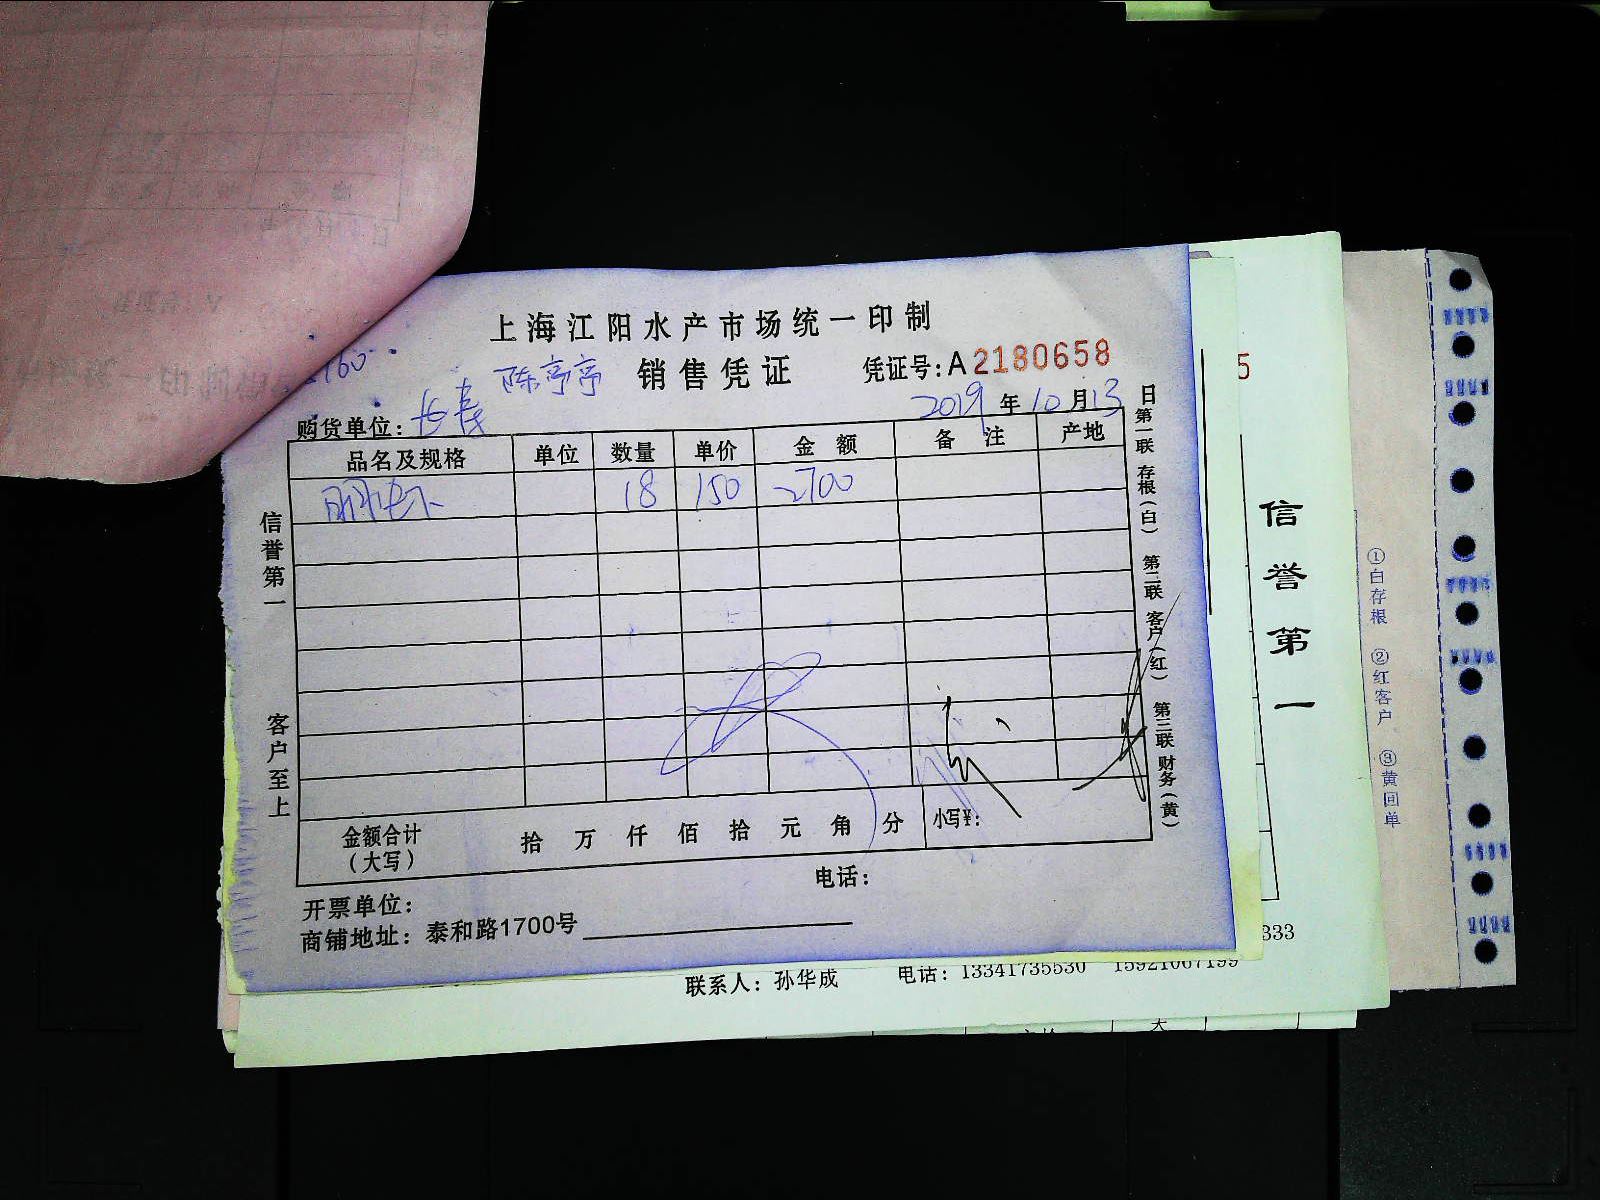 上海江阳水产市场统一印制
陈亭亭 销售凭证 凭证号:A2180658
购货单位: 长寿 2019年10月13日
品名及规格 单位 数量 单价 金额 备注 产地
18 150 2700
金额合计（大写） 拾 万 仟 佰 拾 元 角 分 小写¥:
电话:
开票单位:
商铺地址: 泰和路1700号
信誉第一
客户至上
第一联 存根（白） 第二联 客户（红） 第三联 财务（黄）
5
信誉第一
333
联系人: 孙华成 电话: 13341735530 15921067199
①白存根 ②红客户 ③黄回单